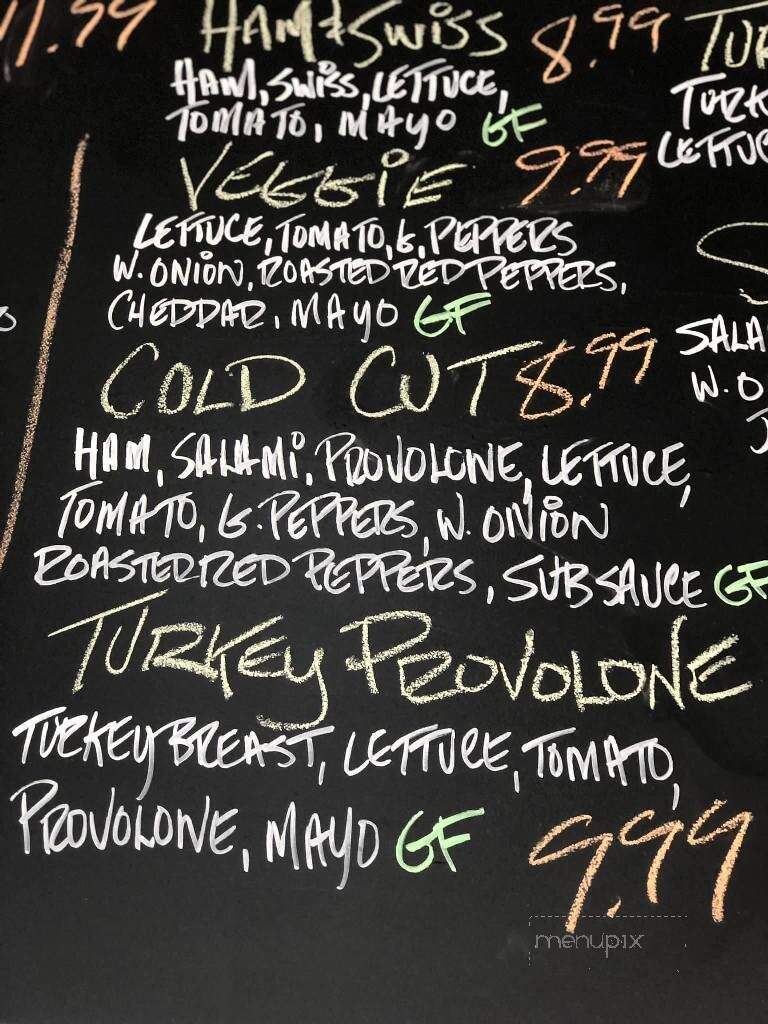 11.99
HAM & SWISS 8.99
HAM, SWISS, LETTUCE,
TOMATO, MAYO GF
VEGGIE 9.99
LETTUCE, TOMATO, G. PEPPERS
W. ONION, ROASTED RED PEPPERS,
CHEDDAR, MAYO GF
COLD CUT 8.99
HAM, SALAMI, PROVOLONE, LETTUCE,
TOMATO, G. PEPPERS, W. ONION
ROASTED RED PEPPERS, SUB SAUCE GF
TURKEY PROVOLONE
TURKEY BREAST, LETTUCE, TOMATO,
PROVOLONE, MAYO GF
9.99
TUR
TURK
LETTUC
S
SALA
W. O
J
menupix